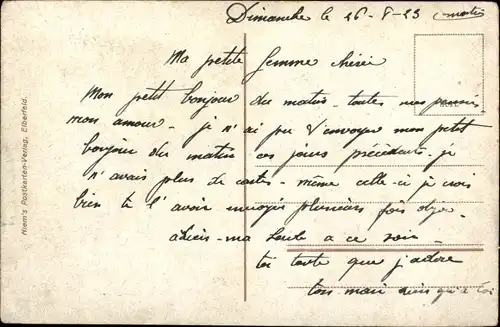 Dimanche le 26-8-23 (matin)
Ma petite femme chérie
Mon petit bonjour du matin - toutes mes pensées
mon amour - je n'ai pu t'envoyer mon petit
bonjour du matin ces jours précédents - je
n'avais plus de cartes - même celle-ci je crois
bien te l'avoir envoyée plusieurs fois déjà -
à bientôt
ce soir -
toi toute que j'adore
ton mari rien qu'à toi
Niem's Postkarten-Verlag, Elberfeld.